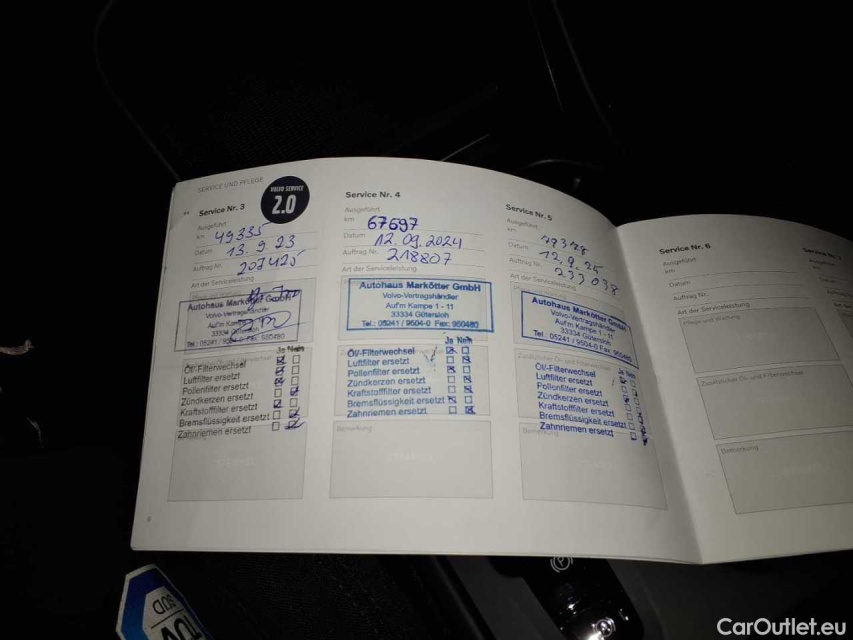 SERVICE UND PFLEGE
VOLVO SERVICE
2.0
Service Nr. 3
Ausgeführt
km 49335
Datum 13.9.23
Auftrag Nr. 207425
Art der Serviceleistung
Autohaus Markötter GmbH
Volvo-Vertragshändler
Auf'm Kampe 1 - 11
33334 Gütersloh
Tel.: 05241 / 9504-0 Fax: 950450
Ja Nein
Öl/-Filterwechsel
Luftfilter ersetzt
Pollenfilter ersetzt
Zündkerzen ersetzt
Kraftstofffilter ersetzt
Bremsflüssigkeit ersetzt
Zahnriemen ersetzt
Service Nr. 4
Ausgeführt
km 67697
Datum 12.09.2024
Auftrag Nr. 218807
Art der Serviceleistung
Autohaus Markötter GmbH
Volvo-Vertragshändler
Auf'm Kampe 1 - 11
33334 Gütersloh
Tel.: 05241 / 9504-0 Fax: 950450
Ja Nein
Öl/-Filterwechsel
Luftfilter ersetzt
Pollenfilter ersetzt
Zündkerzen ersetzt
Kraftstofffilter ersetzt
Bremsflüssigkeit ersetzt
Zahnriemen ersetzt
Bemerkung
Service Nr. 5
Ausgeführt
km
Datum 12.9.25
Auftrag Nr. 233038
Art der Serviceleistung
Autohaus Markötter GmbH
Volvo-Vertragshändler
Auf'm Kampe 1 - 11
33334 Gütersloh
Tel.: 05241 / 9504-0 Fax: 950450
Ja Nein
Öl/-Filterwechsel
Luftfilter ersetzt
Pollenfilter ersetzt
Zündkerzen ersetzt
Kraftstofffilter ersetzt
Bremsflüssigkeit ersetzt
Zahnriemen ersetzt
Bemerkung
Service Nr. 6
Ausgeführt
km
Datum
Auftrag Nr.
Art der Serviceleistung
Pflege und Wartung
Zusätzlicher Öl- und Filterwechsel
Bemerkung
SÜD
TÜV
CarOutlet.eu